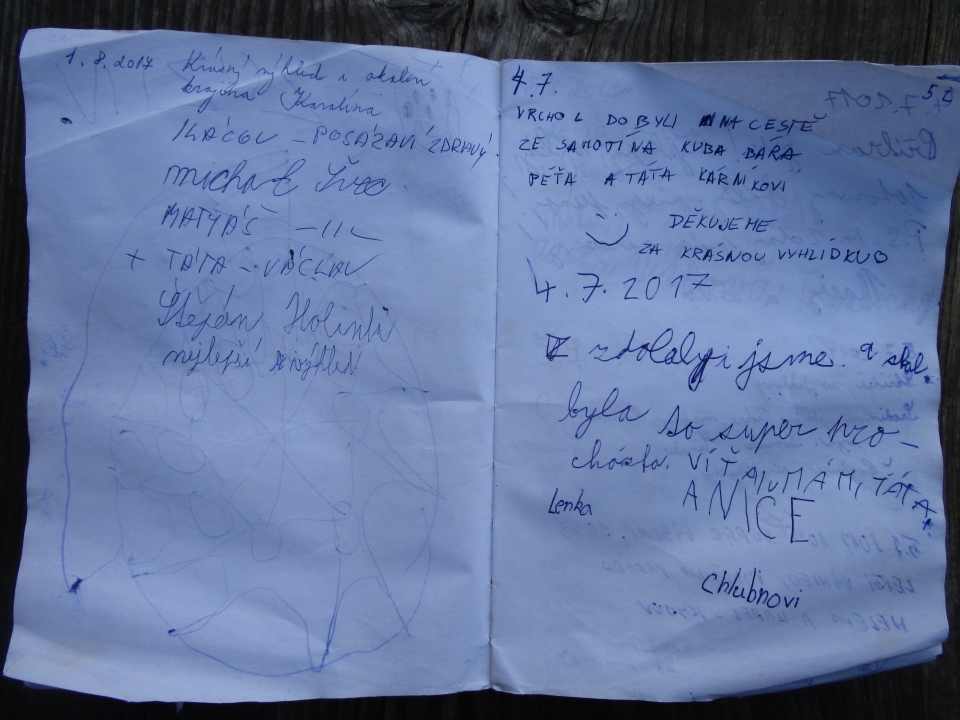 1.8.2017 Krásný výhled i okolní
krajina Karolína
KÁCOV – POSÁZAVÍ ZDRAVÝ
michal Švec
MATYÁŠ –11–
+ TÁTA – VÁCLAV
Štěpán
nejlepší výhled
4.7.
VRCHOL DOBYLI NA CESTĚ
ZE SAMOTÍNA KUBA BÁRA
PÉŤA A TÁTA KÁRNÍKOVI
DĚKUJEME
ZA KRÁSNOU VYHLÍDKUO
4.7.2017
zdolaly jsme.
byla to super pro-
cházka. VÍŤA, MÁMI, TÁTA
ANICE
Lenka
Chlubnovi
52